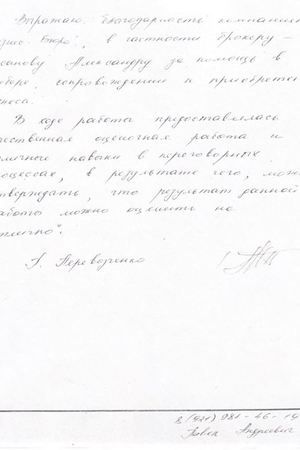 Выражаю благодарность компании
знес Бюро", в частности брокеру -
санову Александру за помощь в
боре, сопровождении и приобрете
неса.
В ходе работы предоставлялась
чественная оценочная работа и
личного навыки в переговорных
оцессах, в результате чего, мож
тверждать, что результат данной
аботы можно оценить на
лично".
Переводченко
8 (921) 981-46-19
Павел Андреевич